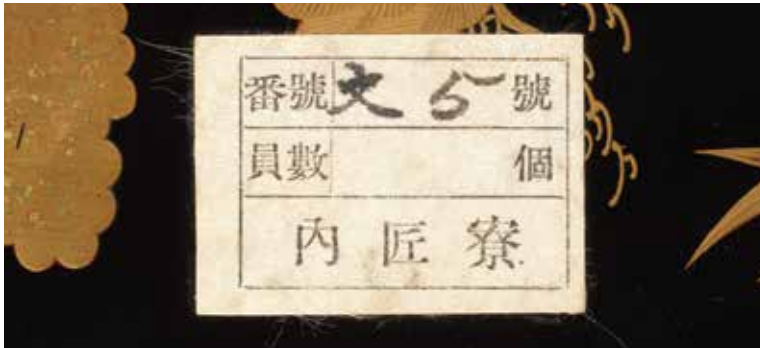 番號文5號
員數 個
内匠寮